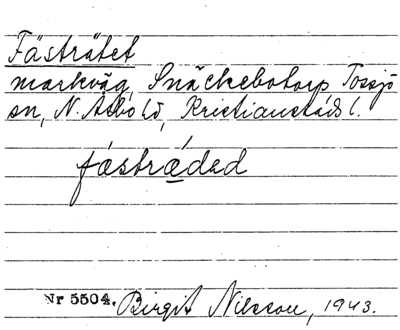 Fästrätet
markväg, Snäckebotorp Tossjö
sn, N. Åsbo hd, Kristianstads l.
fástrǽdad
Nr 5504. Birgit Nilsson, 1943.